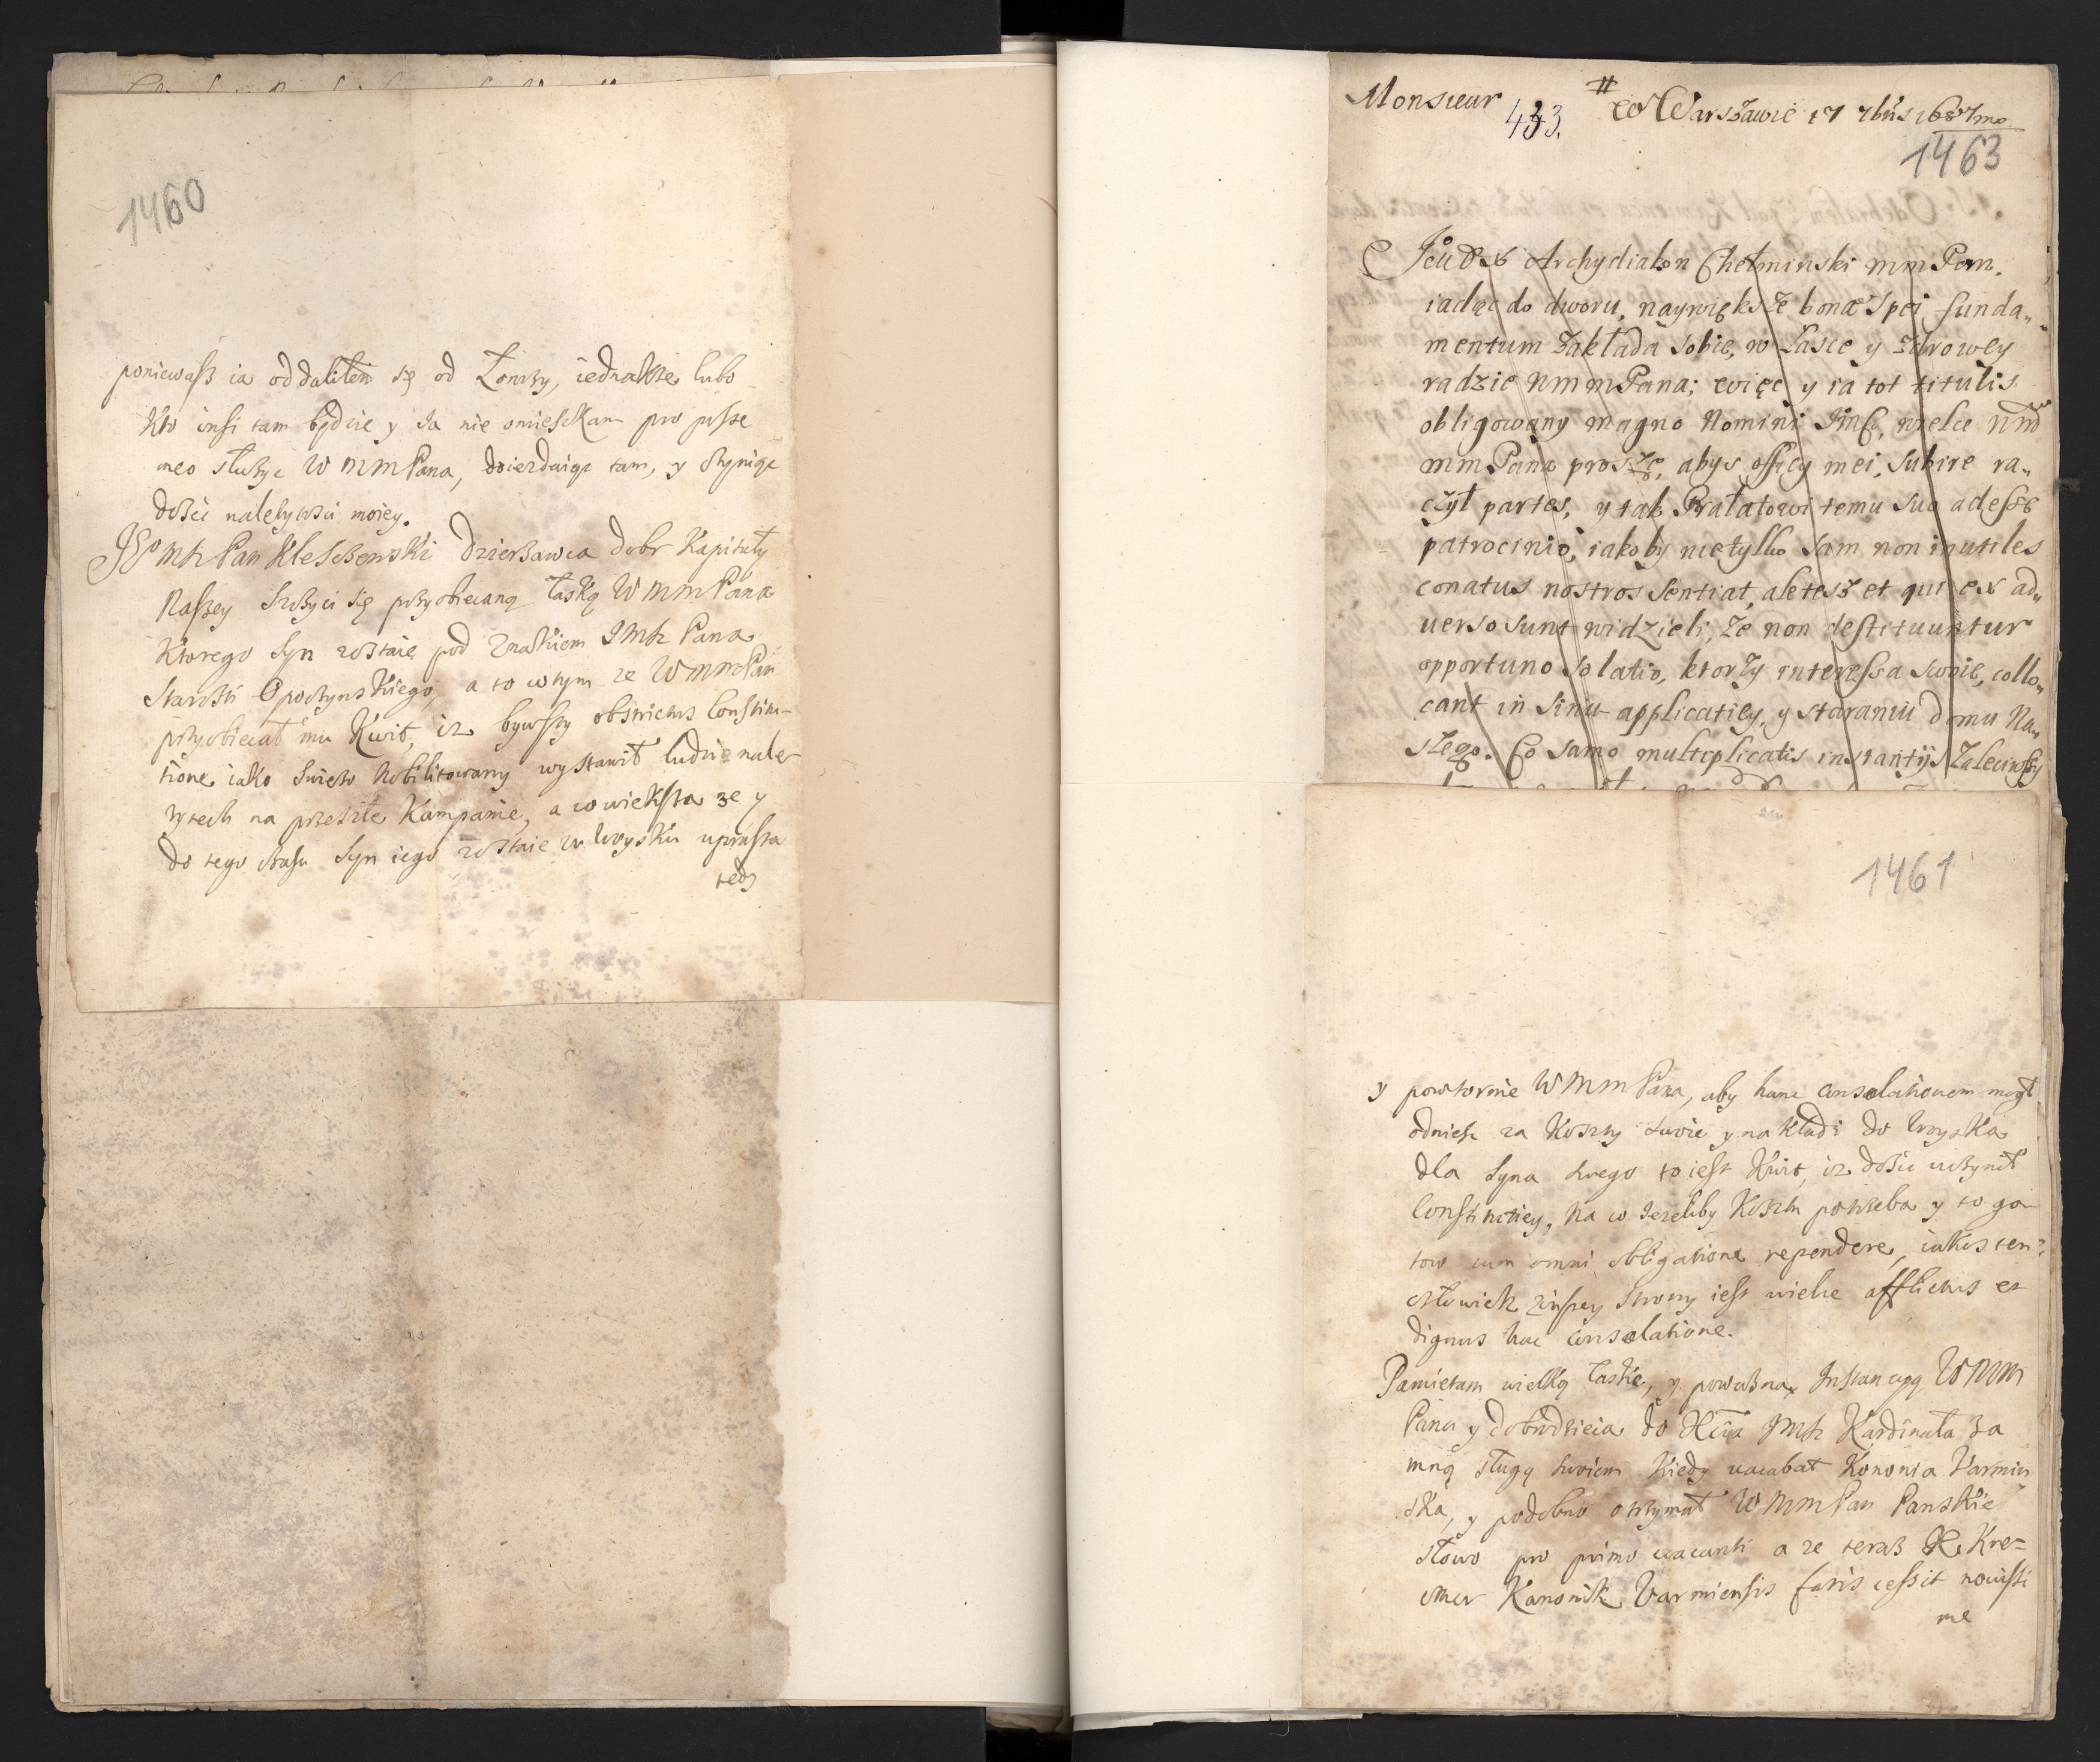 1460
poniewasz ia oddaliłem się od Łomży, iednakże lubo
kto inszi tam będzie y Ja nie omieszkam pro posse
meo służyc WMMPana, doiezdaiąc tam, y czyniąc
dosic należytości moiey.
JMP. Pan Kleszczewski Dzierżawca dobr Kapituły
naszey szczyci się przyobiecaną łaską WMMPana
Ktorego Syn zostaie pod znakiem JMci Pana
Starosti Opoczynskiego, a to w tym ze WMMPan
przyobiecał mu Kwit, iz bywszy obstrictus Constitu-
tione iako swieżo Nobilitowany wystawił ludzi nale
zytech na przeszłe Kampanie, a co wieksza ze y
do tego czasu Syn iego zostaie w Woysku uprasza
tedy
Monsieur 433. # W Warszawie 17 7bris 1687mo
1463
Archydiakon Chełminski mm Pan.
iadąc do dworu, naywiększe bonæ spei funda„
mentum zakłada sobie, w łasce y zdrowey
radzie WmmPana; więc y ia tot titulis
obligowany magno Nomini, wielce
mmPana proszę, abys officy mei, subire ra„
czył partes, y tak Prałatowi temu suo adesse
patrocinio, iakoby nietylko sam non inutiles
conatus nostros sentiat, aletesz et qui ex ad„
uerso sunt widzieli, że non destituuntur
opportuno solatio, ktorży interessa swoie, collo„
cant in sinu applicatiey, y staraniu domu Na„
szego. Co samo multiplicatis instantijs Zaleciwszy
1461
y powtornie WMMPana, aby hanc consolationem mogł
odnieść za koszty swoie y nakładi do Woyska
dla Syna swego to iest Kwit, iz dosic uczynił
Constitutiey, na co Jezeliby Kosztu potrzeba y to go
tow cum omni obligatione rependere, iakos ten
człowiek zinszey strony iest wielce afflictus et
dignus hac consolatione.
Pamietam wielką łaskie, y poważną Instancyą WMM
Pana y dobrodzieia do JMci Kardinała za
mną sługą swoiem kiedy uacabat Kononia Varmin
ska, y podobno otrzymał WMMPan Panskie
słowo pro primo uacanti a ze teraz X. Kre=
tmer Kanonik Varmiensis fatis cessit nouissi
me